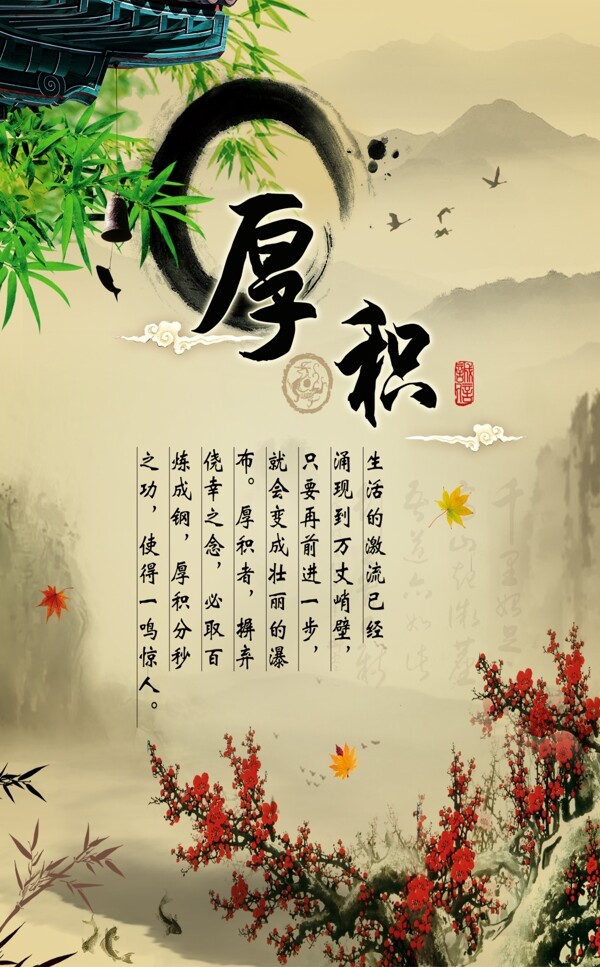 厚积
誠信
生活的激流已经
涌现到万丈峭壁，
只要再前进一步，
就会变成壮丽的瀑
布。厚积者，摒弃
侥幸之念，必取百
炼成钢，厚积分秒
之功，使得一鸣惊人。